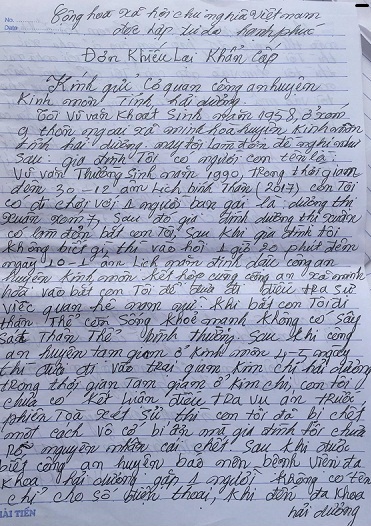 No.
Date
Cộng hoà xã hội chủ nghĩa Việt nam
độc lập tự do hạnh phúc
Đơn Khiếu Lại Khẩn Cấp
Kính gửi cơ quan công an huyện
Kinh môn Tỉnh hải dương
Tôi Vũ văn Khoát Sinh năm 1958, ở xóm
9 thôn xã minh hoà huyện Kinh môn
tỉnh hải dương. nay tôi làm đơn đề nghị như
sau: gia đình Tôi có người con tên là:
Vũ văn Thường Sinh năm 1990, trong thời gian
đêm 30-12 âm lịch bính Thân (2017) con Tôi
có đi chơi với 1 người bạn gái là: dương thị
xuân xóm 7, sau đó gia đình dương thị xuân
có làm đơn bắt con Tôi, sau khi gia đình tôi
không biết gì thì vào hồi 1 giờ 20 phút đêm
ngày 10-1 âm lịch năm đinh dậu công an
huyện Kinh môn Kết hợp cùng công an xã minh
hoà vào bắt con Tôi để đưa đi điều tra sự
việc quan hệ nam nữ, khi bắt con Tôi đi
thân Thể con Sống khoẻ mạnh không có sây
sát Thân Thể bình thường. Sau khi công
an huyện tạm giam ở Kinh môn 4-5 ngày
thì đưa đi vào trại giam Kim chi hải dương
trong thời gian tạm giam ở Kim chi, con tôi
chưa có Kết luận điều tra vụ án trước
phiên Toà xét sử thì con tôi đã bị chết
một cách vô cớ bí ẩn mà gia đình tôi chưa
rõ nguyên nhân cái chết sau khi được
biết công an huyện bảo nên bệnh viện đa
khoa hải dương gặp 1 người không có tên
chỉ cho số điện thoại, khi đến đa khoa
hải dương
HẢI TIẾN